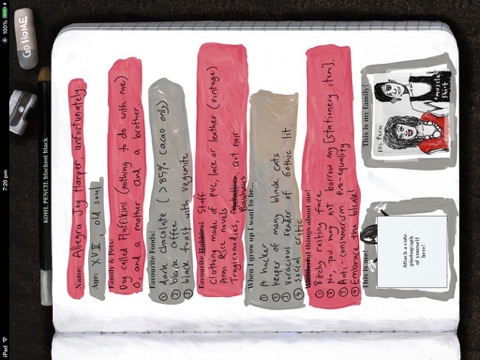 iPad
7:20 pm
100%
GO HOME
KOHL PENCIL blackest black
Name: Allegra Joy Harper unfortunately
Age: XVII, old soul
Family & Pets:
Dog called Pfaffikins (nothing to do with me)
O, and a mother and a brother.
Favourite Foods:
① dark chocolate (>85% cacao only)
② black coffee
③ black toast with vegemite
Favourite Hobbies: Stuff
Clothing made of PVC, lace or leather (vintage)
Anne Rice novels
Tragicomedies, art noir
Bauhaus
When I grow up I want to be...
① A hacker
② keeper of many black cats
③ Voracious reader of Gothic lit
④ social critic
things about me!
① Bitch resting face
② No, you may not borrow my [stationery item].
③ Anti-consumerism. Pro-equality.
④ Embrace the blah!
This is my family!
This is me!
Attach a cute
photograph
of yourself
here!